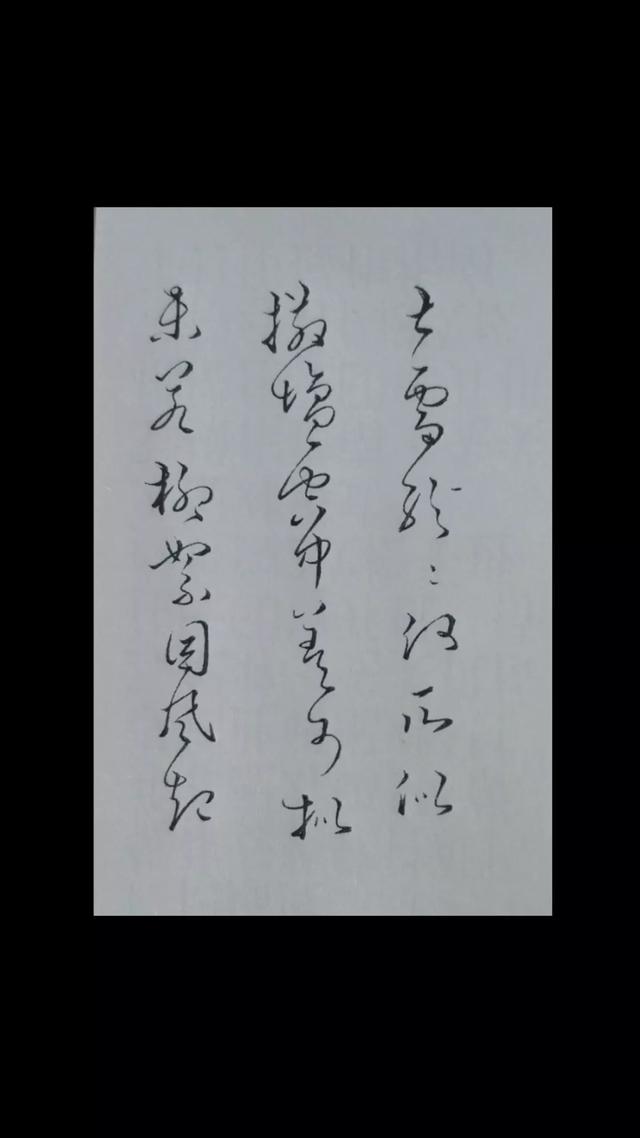 大雪纷纷何所似
撒盐空中差可拟
未若柳絮因风起